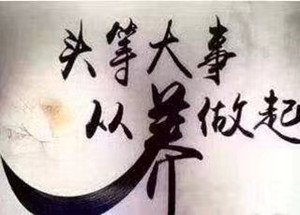 头等大事
从养做起